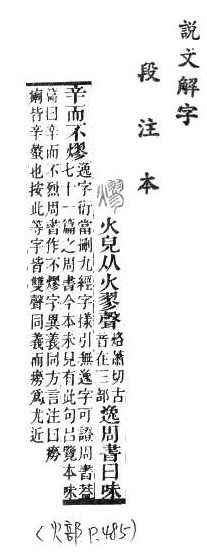 說文解字
段注本
熮
火皃从火翏聲洛蕭切古音在三部逸周書曰味
辛而不熮逸字衍當刪九經字樣引無逸字可證周書葢
七十一篇之周書今本未見有此句呂覽本味
篇曰辛而不烈周書作不熮字異義同方言注曰癆
瘌皆辛螫也按此等字皆雙聲同義而癆爲尤近
(火部 P.485)